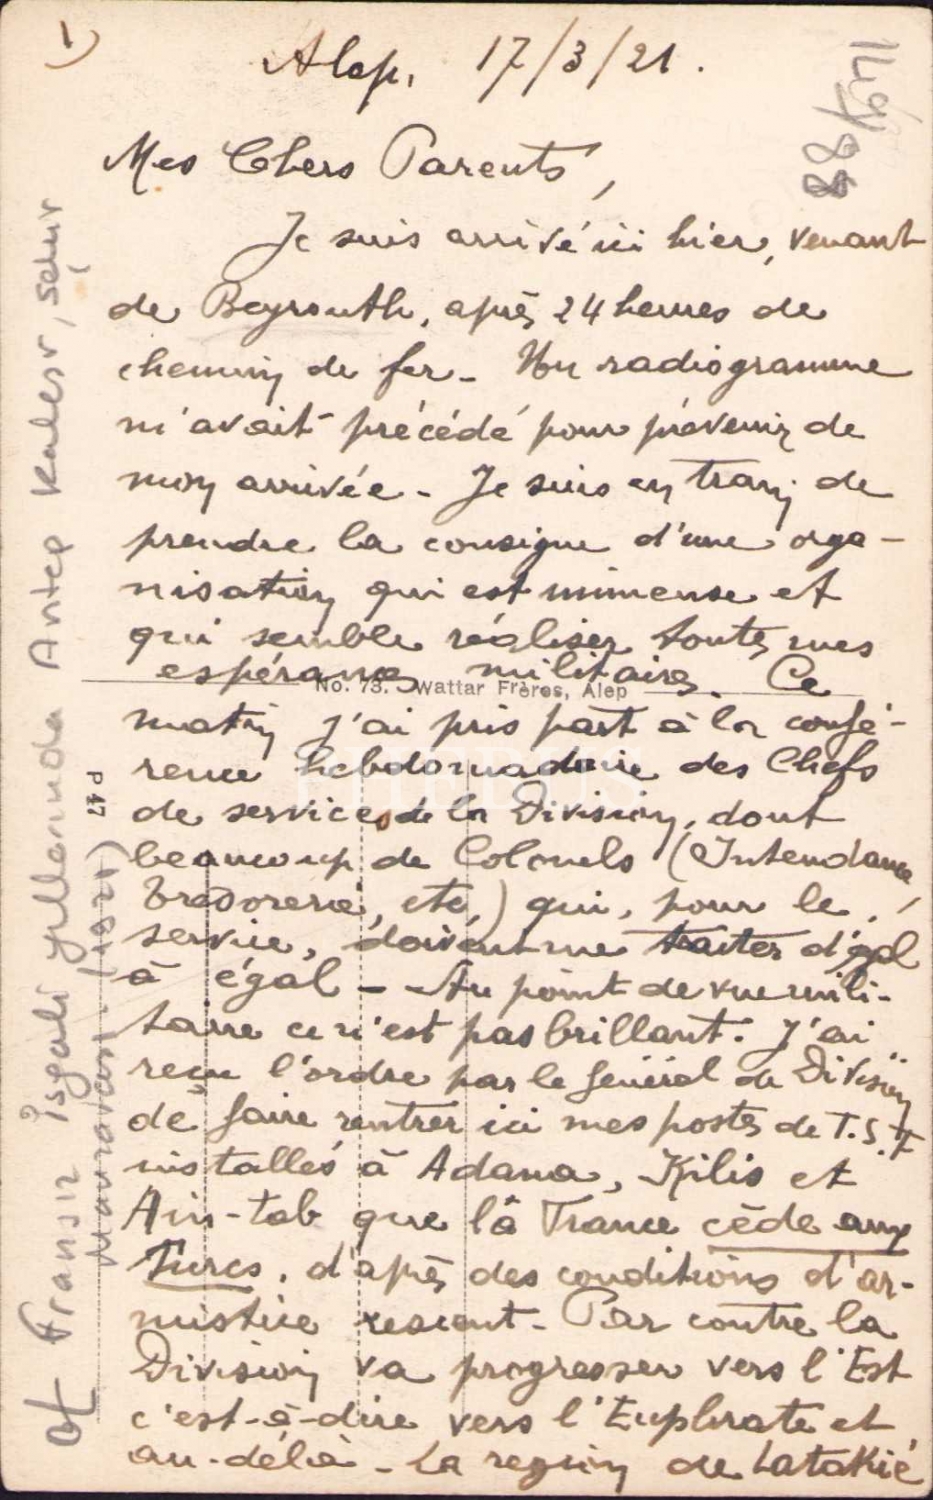 1)
Alep, 17/3/21.
Mes Chers Parents,
Je suis arrivé ici hier, venant
de Beyrouth, après 24 heures de
chemin de fer - Un radiogramme
m'avait précédé pour prévenir de
mon arrivée - Je suis en train de
prendre la consigne d'une orga-
nisation qui est immense et
qui semble réaliser toutes mes
espérances militaires. Ce
No. 73. Wattar Frères, Alep
matin j'ai pris part à la confé-
rence hebdomadaire des Chefs
de services de la Division, dont
beaucoup de Colonels (Intendance,
Trésorerie, etc,) qui, pour le
service, doivent me traiter d'égal
à égal - Au point de vue mili-
taire ce n'est pas brillant. J'ai
reçu l'ordre par le Général de Division
de faire rentrer ici mes postes de T.S.F
installés à Adana, Kilis et
Ain-tab que la France cède aux
Turcs, d'après des conditions d'ar-
mistice rescent - Par contre la
Division va progresser vers l'Est
c'est-à-dire vers l'Euphrate et
au-délà - La region de Latakié
PHEBUS
Fransız İşgali yıllarında Antep Kalesi, şehir
(1921)
P 47